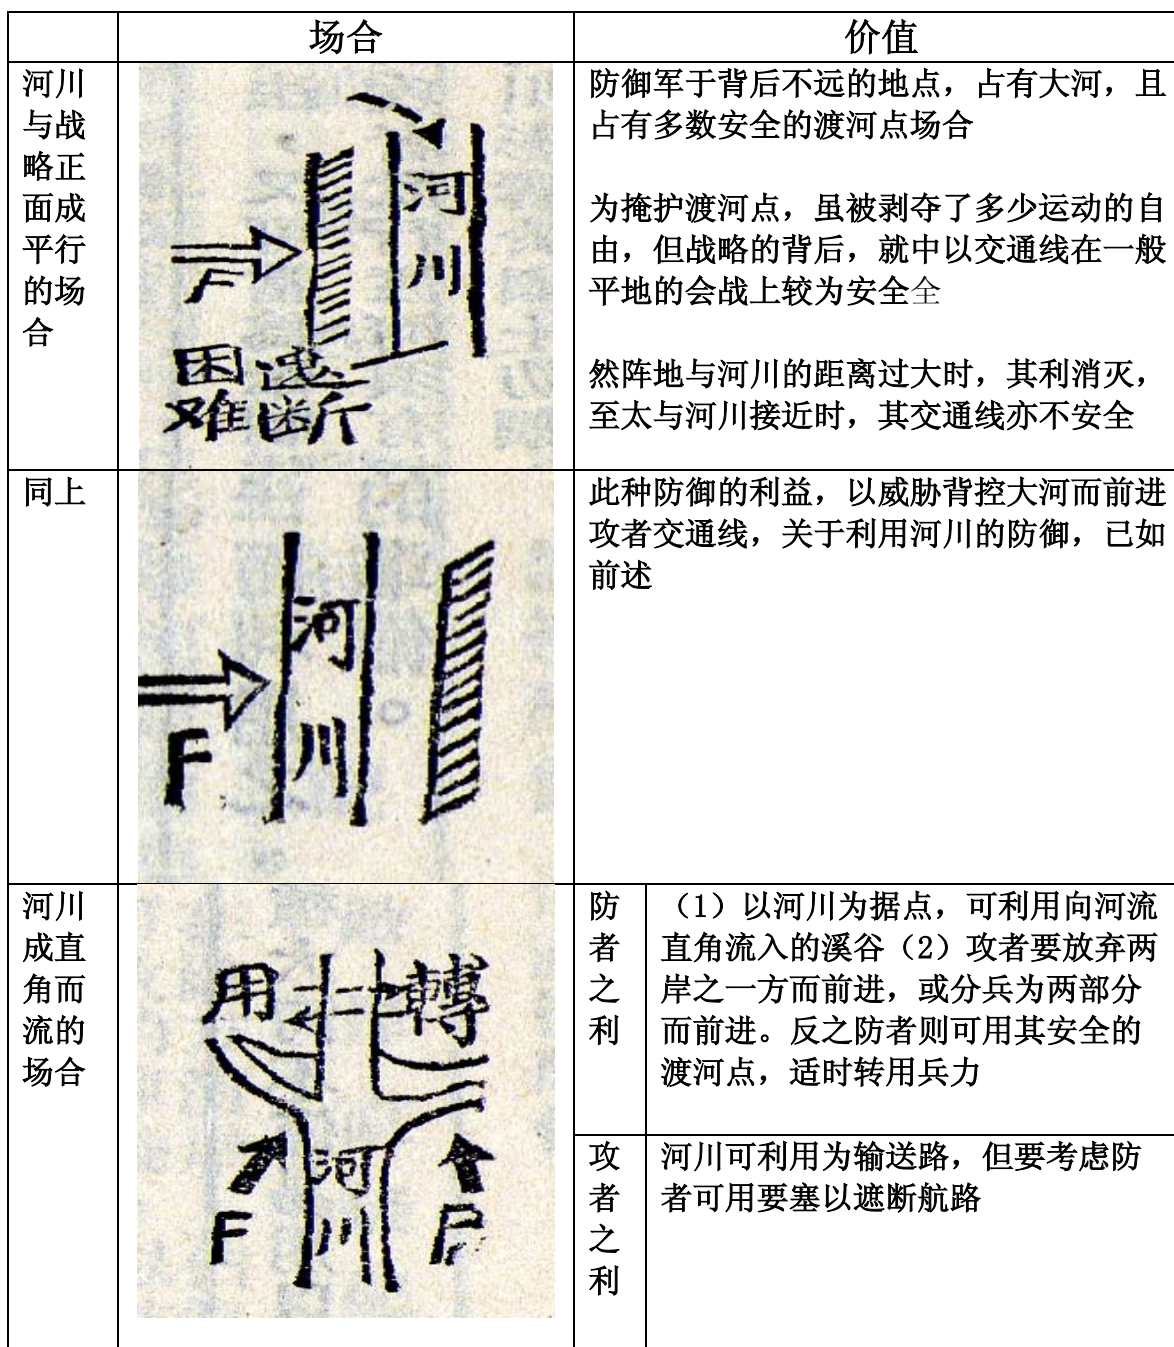 场合
价值
河川
与战
略正
面成
平行
的场
合
河
川
F
困遮
难断
防御军于背后不远的地点，占有大河，且
占有多数安全的渡河点场合
为掩护渡河点，虽被剥夺了多少运动的自
由，但战略的背后，就中以交通线在一般
平地的会战上较为安全全
然阵地与河川的距离过大时，其利消灭，
至太与河川接近时，其交通线亦不安全
同上
河
川
F
此种防御的利益，以威胁背控大河而前进
攻者交通线，关于利用河川的防御，已如
前述
河川
成直
角而
流的
场合
用 轉
河
川
F
F
防
者
之
利
（1）以河川为据点，可利用向河流
直角流入的溪谷（2）攻者要放弃两
岸之一方而前进，或分兵为两部分
而前进。反之防者则可用其安全的
渡河点，适时转用兵力
攻
者
之
利
河川可利用为输送路，但要考虑防
者可用要塞以遮断航路